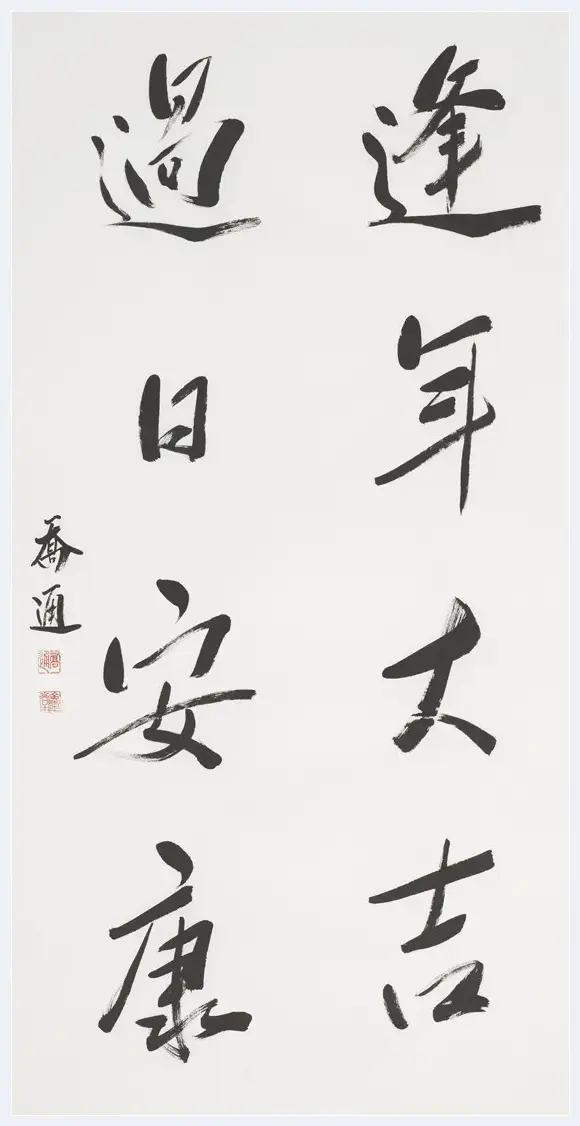 逢年大吉
過日安康
喬通